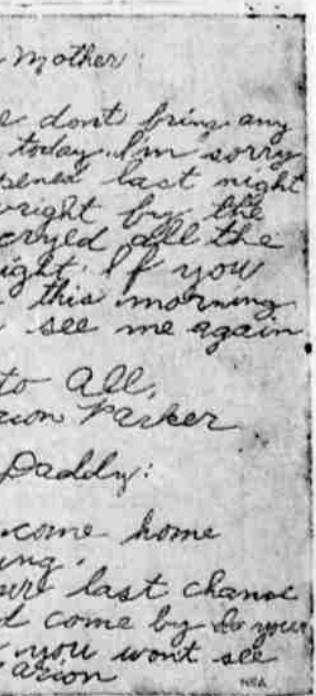 Mother:
dont bring any
today. I'm sorry
pened last night
right by the
cryed all the
ight. If you
this morning
see me again
to All,
ion Parker
Daddy:
come home
ing.
ur last chanse
d come by
you wont see
arion
NEA